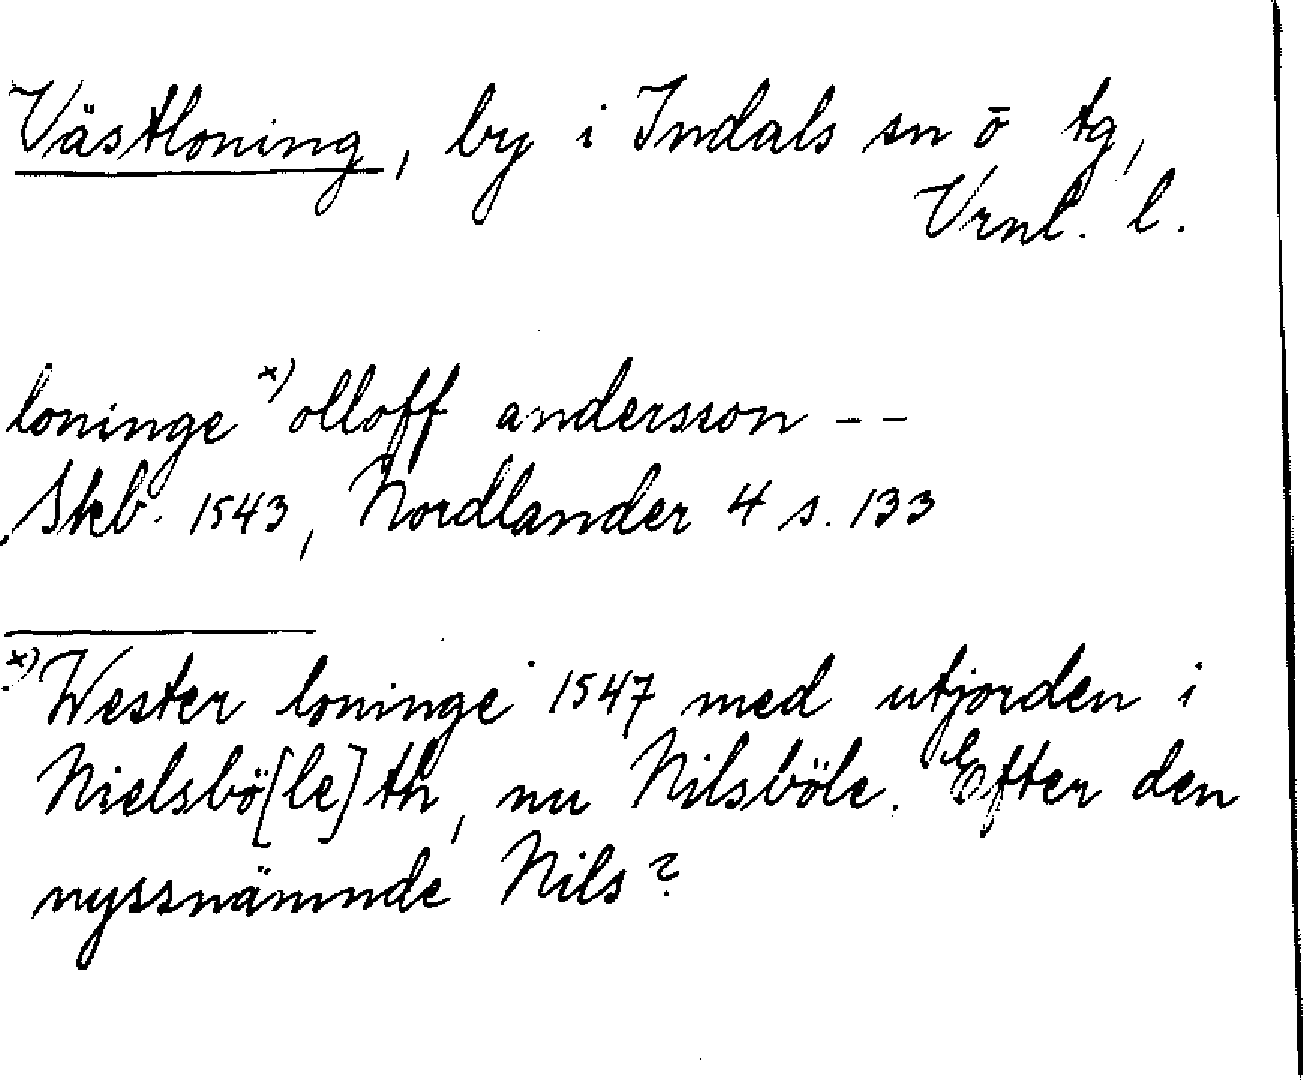 Västloning, by i Indals sn ō tg,
Vrnl. l.
loninge x) olloff andersson - -
Skb. 1543, Nordlander 4 s. 133
x) Wester loninge 1547 med utjorden i
Nielsbö[le]th, nu Nilsböle. Efter den
nyssnämnde Nils?